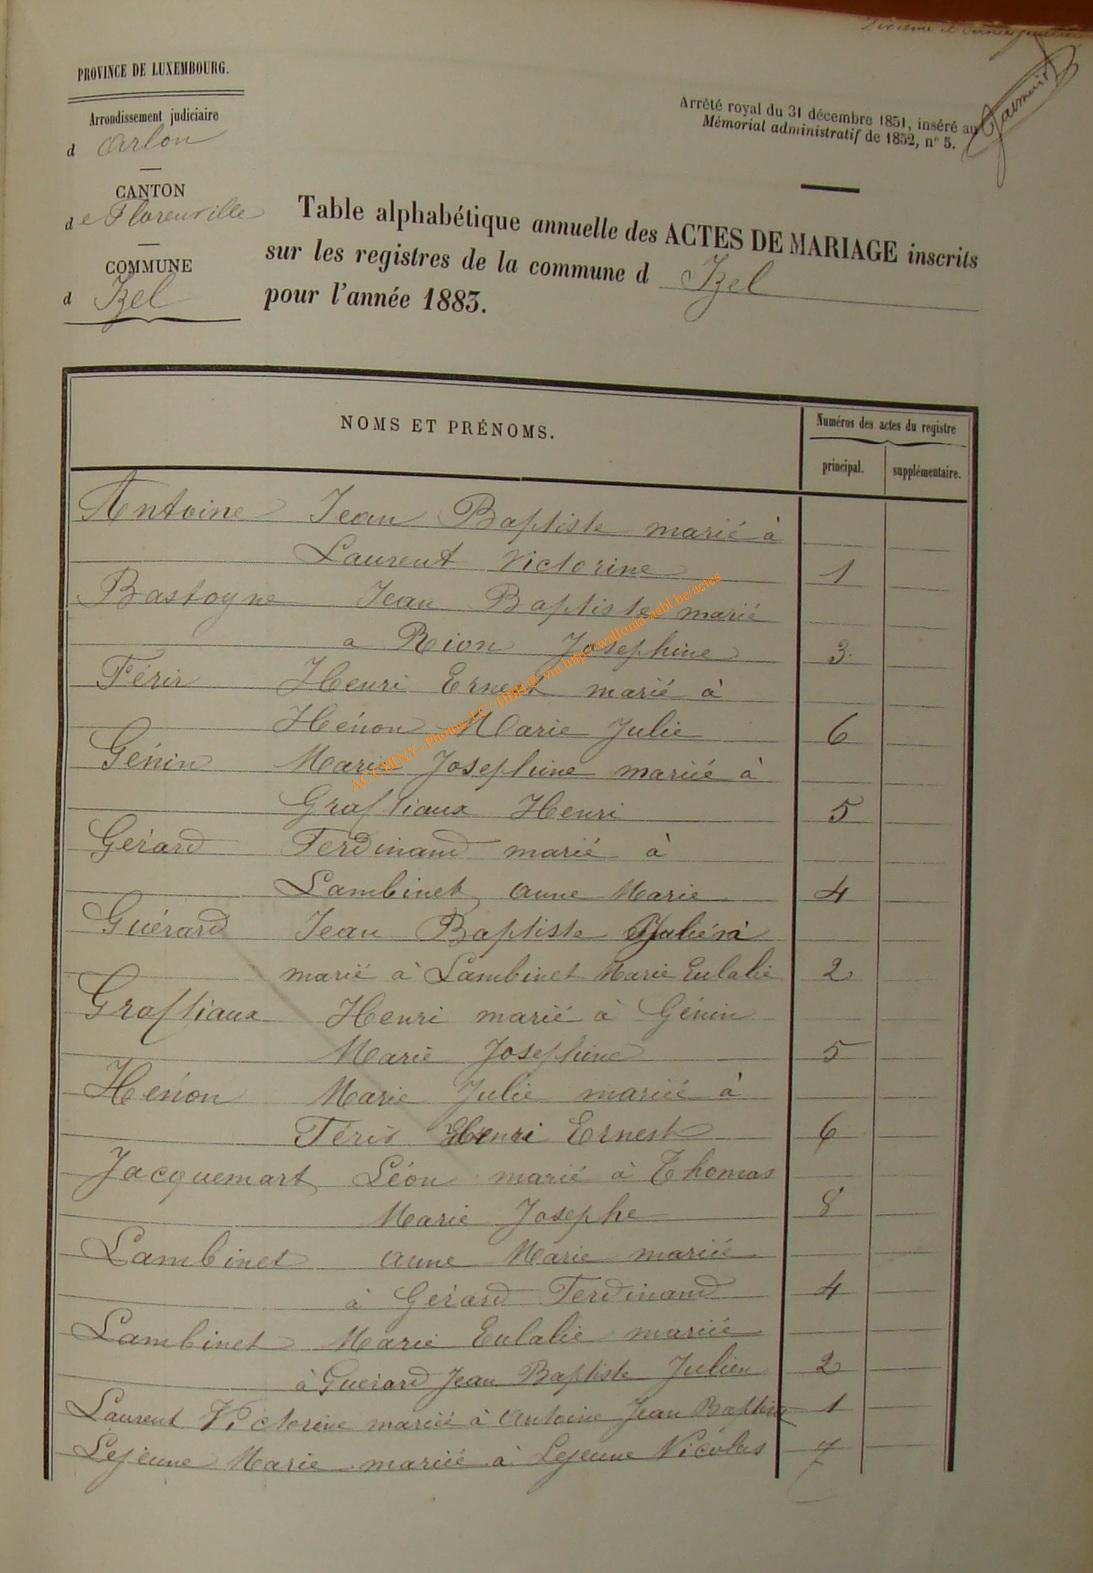 Dixième et dernier
PROVINCE DE LUXEMBOURG.
Arrondissement judiciaire
d Arlon
CANTON
de Florenville
COMMUNE
d Izel
Arrêté royal du 31 décembre 1851, inséré au
Mémorial administratif de 1852, n° 5.
Table alphabétique annuelle des ACTES DE MARIAGE inscrits
sur les registres de la commune d Izel
pour l'année 1883.
NOMS ET PRÉNOMS.
Numéros des actes du registre
principal.
supplémentaire.
Antoine Jean Baptiste marié à
Laurent Victorine 1
Bastogne Jean Baptiste marié
a Rion Josephine 3
Férir Henri Ernest marié à
Hénon Marie Julie 6
Génin Marie Josephine mariée à
Graftiaux Henri 5
Gérard Ferdinand marié à
Lambinet, Anne Marie 4
Guérard Jean Baptiste Julien
marié à Lambinet Marie Eulalie 2
Graftiaux Henri marié à Génin
Marie Josephine 5
Hénon Marie Julie mariée à
Férir Henri Ernest 6
Jacquemart Léon marié à Thomas
Marie Josephe 8
Lambinet Anne Marie mariée
à Gérard Ferdinand 4
Lambinet Marie Eulalie mariée
à Guérard Jean Baptiste Julien 2
Laurent Victorine mariée à Antoine Jean Baptiste 1
Lejeune Marie mariée à Lejeune Nicolas 7